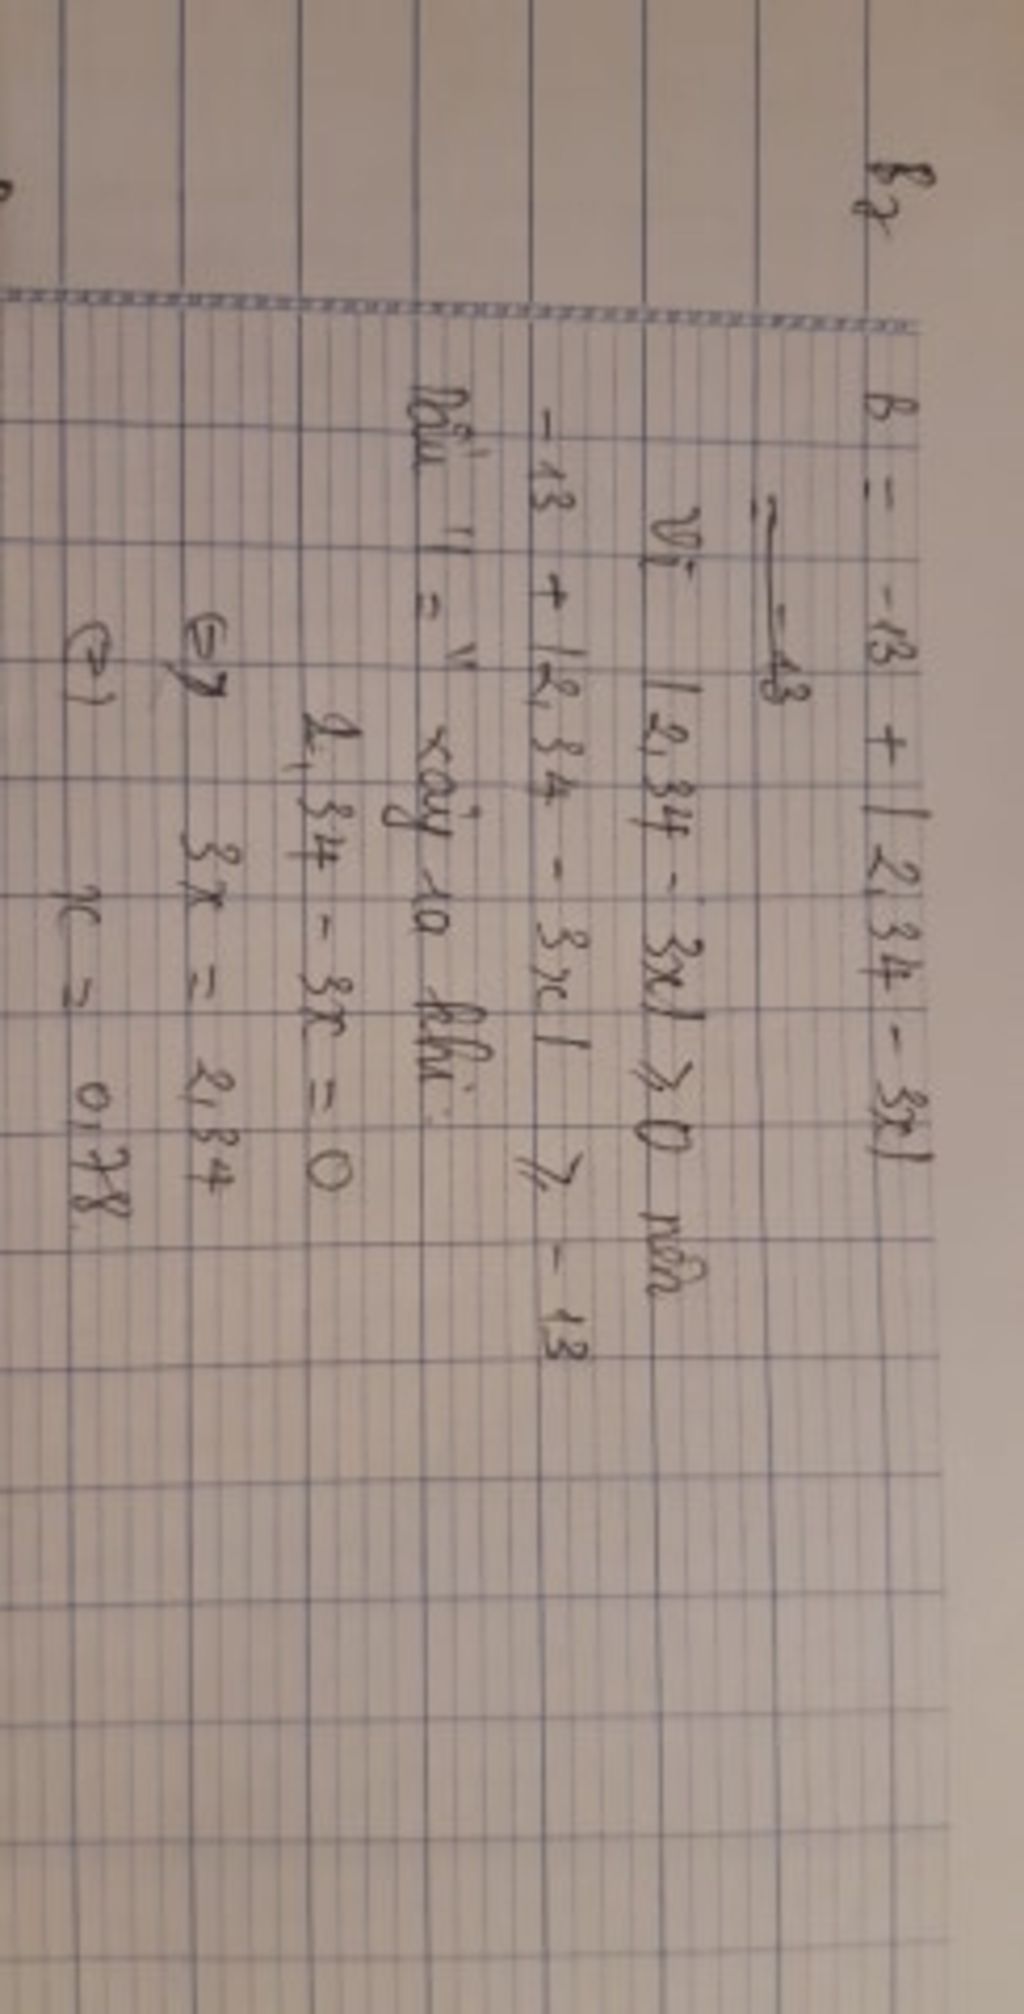 B = -13 + |2,34 - 3x|
= -13
Vì |2,34 - 3x| ⩾ 0 nên
-13 + |2,34 - 3x| ⩾ -13
Dấu "=" xảy ra khi:
2,34 - 3x = 0
(=) 3x = 2,34
(=) x = 0,78